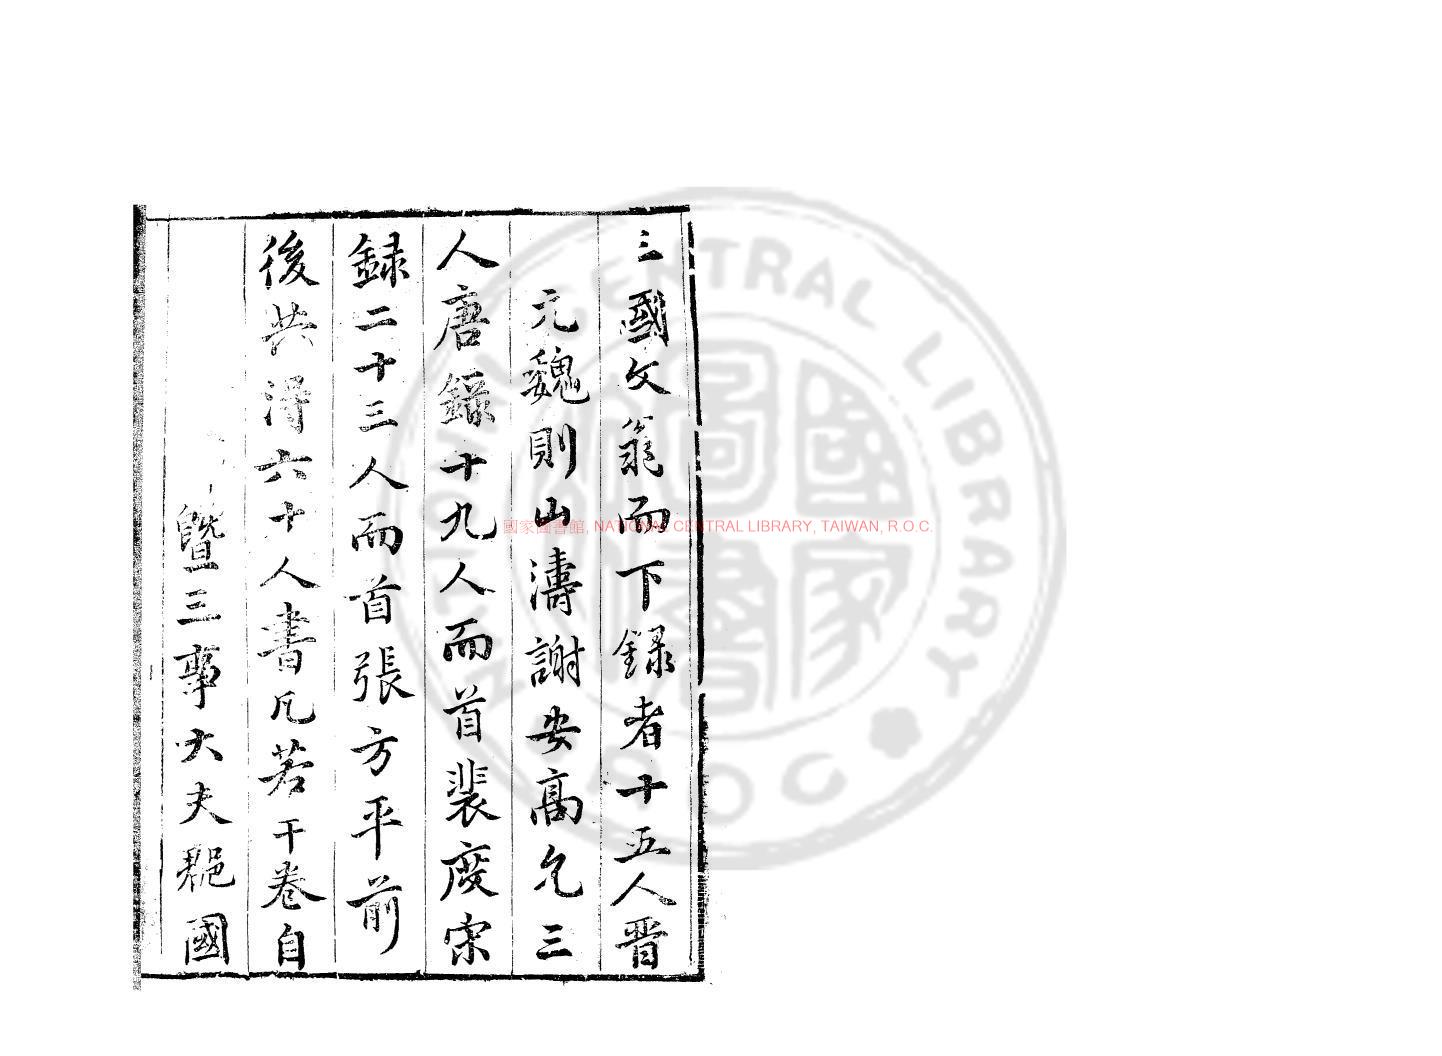 三國文翁而下錄者十五人晋
元魏則山濤謝安高允三
人唐錄十九人而首裴度宋
録二十三人而首張方平前
後共得六十人書凡若干卷自
暨三事大夫郡國
國家圖書館, NATIONAL CENTRAL LIBRARY, TAIWAN, R.O.C.
NATIONAL CENTRAL LIBRARY
R.O.C
國家圖書